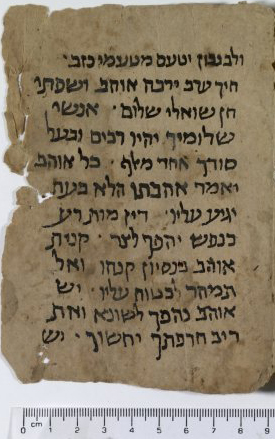 ולב נבון יטעם מטעמי כזב ·
חיך ערב ירבה אוהב ושפתי
חן שואלי שלום · אנשי
שלומיך יהיו רבים ובעל
סודך אחד מאלף · כל אוהב
יאמר אהבתי הלא בעת
יגיע עליו · דין מות ריע
כנפש יהפך לצר · קנית
אוהב בנסיון קנהו ואל
תמהר לבטוח עליו · יש
אוהב נהפך לשונא ואת
ריב חרפתך יחשוף · יש
0 cm 1 2 3 4 5 6 7 8 9